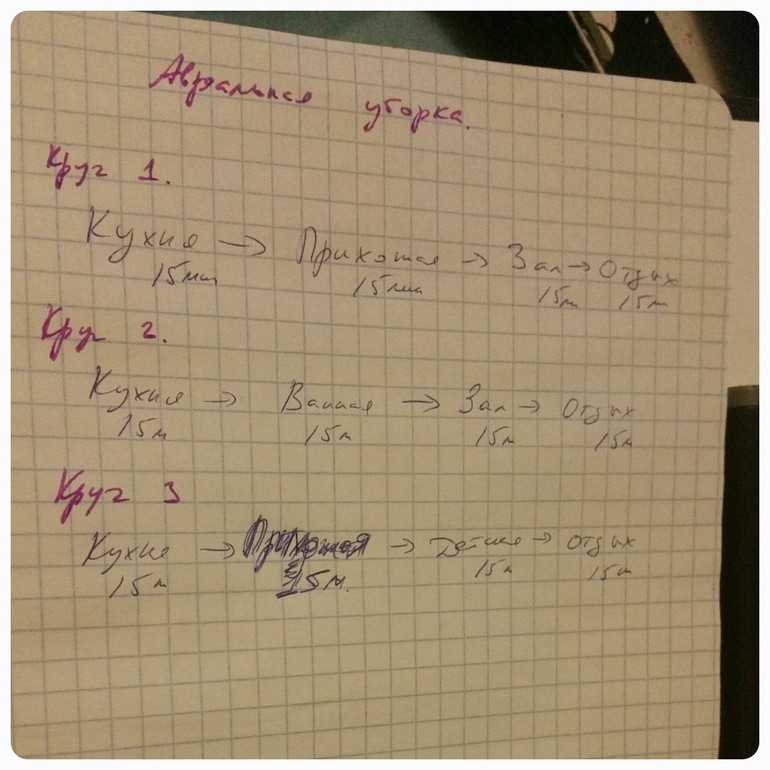 Авральная уборка.
Круг 1.
Кухня → Прихожая → Зал → Отдых
15мин 15мин 15м 15м
Круг 2.
Кухня → Ванная → Зал → Отдых
15м 15м 15м 15м
Круг 3
Кухня → Прихожая → Детская → Отдых
15м 15м. 15м 15м